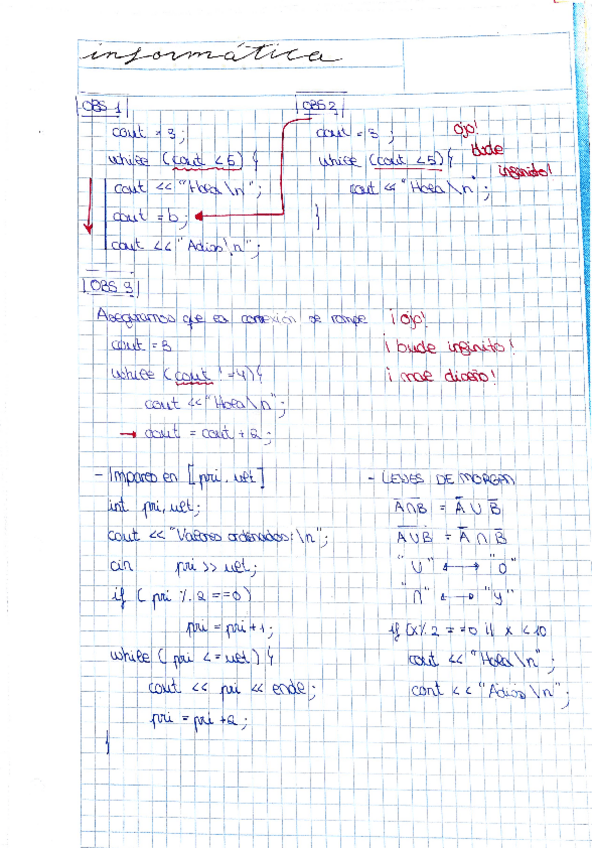 informática
OBS 1
cout = 3;
while (cout < 5) {
cout << "Hola \n";
cout = 6;
cout << "Adios!\n";
OBS 2
cout = 3;
while (cout < 5) {
cout << "Hola \n";
}
ojo!
bucle
infinito!
OBS 3
Aseguramos que la conexión se rompe
cout = 3
while (cout != 4) {
cout << "Hola \n";
→ cout = cout + 2;
¡ ojo!
¡ bucle infinito!
¡ mal diseño!
- Impares en [pri, ult]
int pri, ult;
cout << "Valores ordenados: \n";
cin pri >> ult;
if ( pri % 2 == 0)
pri = pri + 1;
while ( pri <= ult) {
cout << pri << endl;
pri = pri + 2;
}
- LEYES DE MORGAN
A∩B = A ∪ B
A∪B = A ∩ B
"U" ↔ "O"
"∩" ↔ "y"
if (x % 2 == 0 || x < 10
cout << "Hola \n";
cout << "Adios \n";